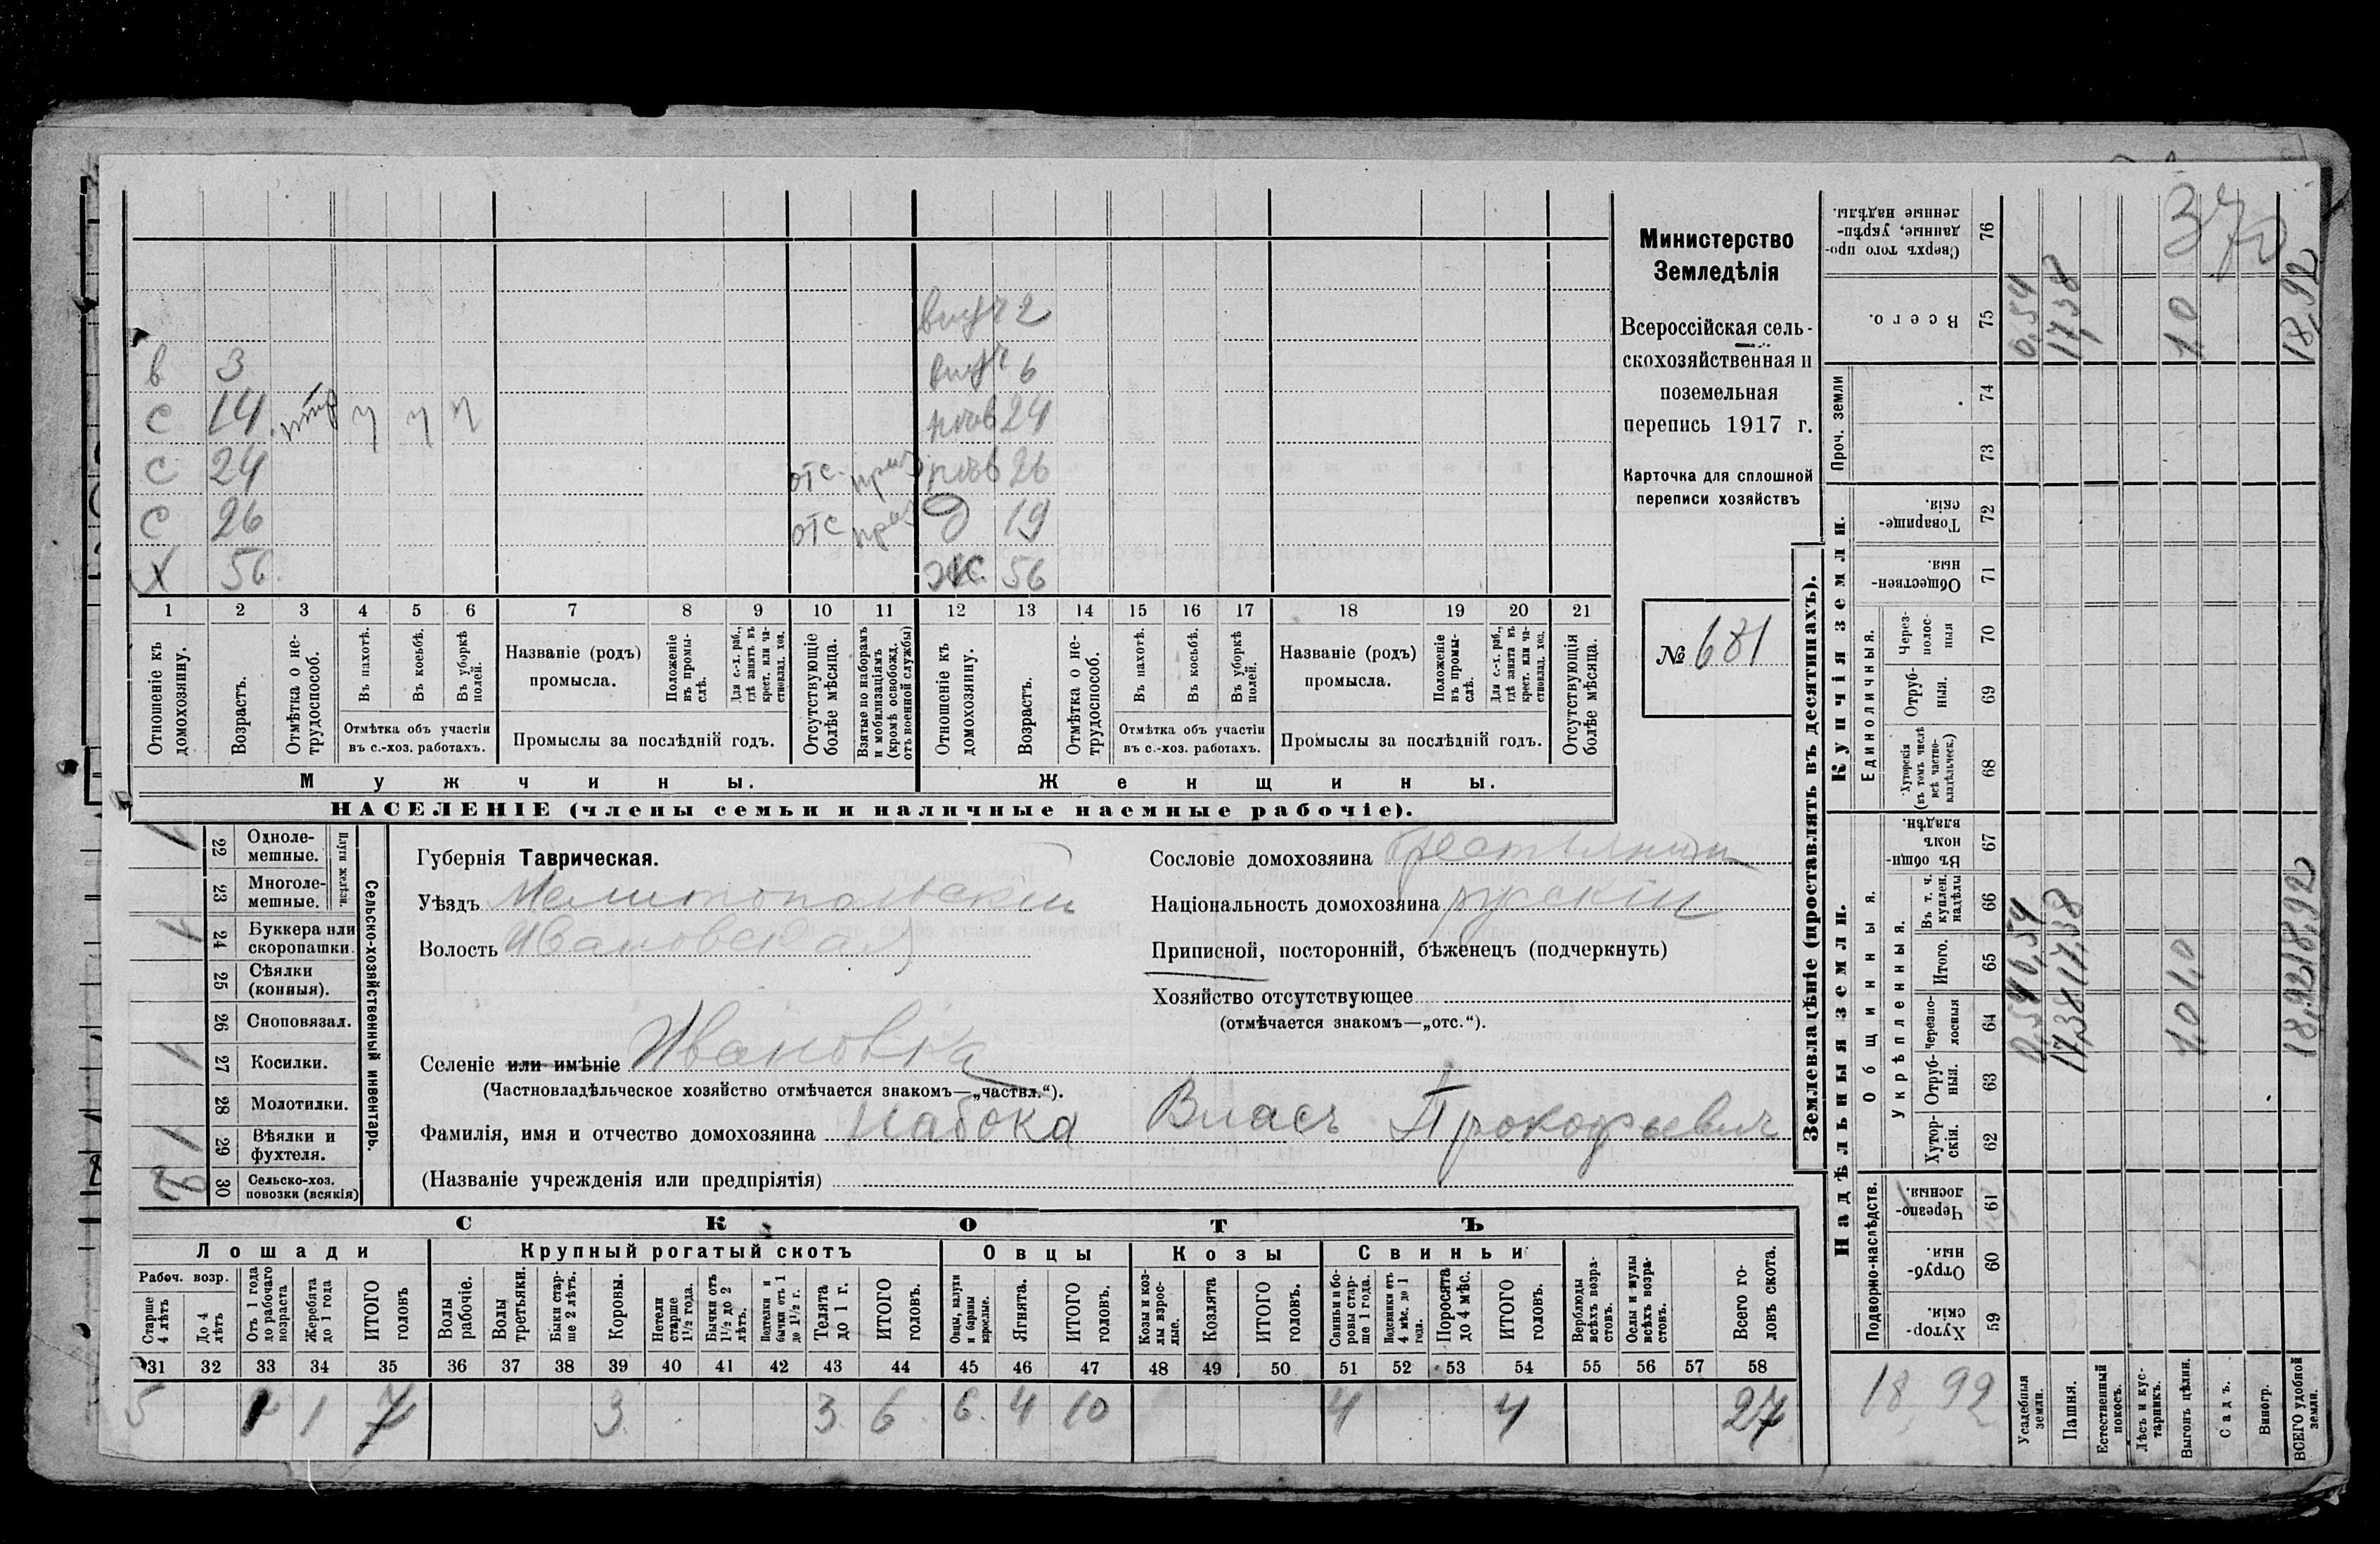 внуч 2
в 3 внуч 6
с 14 7 7 7 нев 24
с 24 отс. приз нев 26
с 26 отс приз д 19
х 56 ж. 56
1 2 3 4 5 6 7 8 9 10 11 12 13 14 15 16 17 18 19 20 21
Отношеніе къ домохозяину.
Возрастъ.
Отмѣтка о нетрудоспособ.
Въ пахотѣ.
Въ косьбѣ.
Въ уборкѣ полей.
Отмѣтка объ участіи въ с.-хоз. работахъ.
Названіе (родъ) промысла.
Положеніе въ промыслѣ.
Для с.-х. раб., гдѣ занятъ въ крест. или частновлад. хоз.
Промыслы за послѣдній годъ.
Отсутствующіе болѣе мѣсяца.
Взятые по наборамъ и мобилизаціямъ (кромѣ освобожд. отъ военной службы)
Отношеніе къ домохозяину.
Возрастъ.
Отмѣтка о нетрудоспособ.
Въ пахотѣ.
Въ косьбѣ.
Въ уборкѣ полей.
Отмѣтка объ участіи въ с.-хоз. работахъ.
Названіе (родъ) промысла.
Положеніе въ промыслѣ.
Для с.-х. раб., гдѣ занята въ крест. или частновлад. хоз.
Промыслы за послѣдній годъ.
Отсутствующія болѣе мѣсяца.
Мужчины. Женщины.
НАСЕЛЕНІЕ (члены семьи и наличные наемные рабочіе).
Министерство
Земледѣлія
Всероссійская сель-
скохозяйственная и
поземельная
перепись 1917 г.
Карточка для сплошной
переписи хозяйствъ
№ 681
1 22 Одноле-мешные.
23 Многоле-мешные.
Плуги желѣзн.
1 24 Буккера или скоропашки.
25 Сѣялки (конныя).
26 Сноповязал.
1 27 Косилки.
28 Молотилки.
1 29 Вѣялки и фухтеля.
30 Сельско-хоз. повозки (всякія)
Сельско-хозяйственный инвентарь.
Губернія Таврическая.
Уѣздъ Мелитопольскій
Волость Ивановская
Селеніе или имѣніе Ивановка
(Частновладѣльческое хозяйство отмѣчается знакомъ—„частвл.“).
Фамилія, имя и отчество домохозяина Набока Власъ Прокофьевич
(Названіе учрежденія или предпріятія)
Сословіе домохозяина крестьянинъ
Національность домохозяина русскій
Приписной, посторонній, бѣженецъ (подчеркнуть)
Хозяйство отсутствующее
(отмѣчается знакомъ—„отс.“).
СКОТЪ
Лошади Крупный рогатый скотъ Овцы Козы Свиньи
Рабоч. возр.
Старше 4 лѣтъ
До 4 лѣтъ
Отъ 1 года до рабочаго возраста
Жеребята до 1 года
ИТОГО головъ
Волы рабочіе.
Волы третьяки.
Быки старше 2 лѣтъ.
Коровы.
Нетели старше 1½ года.
Бычки отъ 1½ до 2 лѣтъ.
Подтелки и бычки отъ 1 до 1½ г.
Телята до 1 г.
ИТОГО головъ.
Овцы, валухи и бараны взрослые.
Ягнята.
ИТОГО головъ.
Козы и козлы взрослые.
Козлята
ИТОГО головъ.
Свиньи и боровы старше 1 года.
Подсвинки отъ 4 мѣс. до 1 года.
Поросята до 4 мѣс.
ИТОГО головъ.
Верблюды всѣхъ возрастовъ.
Ослы и мулы всѣхъ возрастовъ.
Всего головъ скота.
31 32 33 34 35 36 37 38 39 40 41 42 43 44 45 46 47 48 49 50 51 52 53 54 55 56 57 58
5 1 1 7 3 3 6 6 4 10 4 4 27
Землевладѣніе (проставлять въ десятинахъ).
Купчія земли.
Надѣльныя земли.
Сверхъ того проданные, укрѣпленные надѣлы. 76
Всего. 75
Проч. земли 74 73
Товарищескія. 72
Общественныя. 71
Единоличныя.
Черезполосныя 70
Отрубныя. 69
Хуторскія (въ томъ числѣ всѣ частновладѣльческ.) 68
Общинныя.
Въ общиномъ владѣн. 67
Укрѣпленныя.
Въ т. ч. куплен. надѣлы 66
Итого. 65
Черезполосныя 64
Отрубныя. 63
Хуторскія. 62
Подворно-наслѣдств.
Черезполосныя. 61
Отрубныя. 60
Хуторскія. 59
Усадебныя земли.
Пашня.
Естественный покосъ.
Лѣсъ и кустарникъ.
Выгонъ цѣлин.
Садъ.
Виногр.
ВСЕГО удобной земли.
0,54 17,38 1,0 18,92
0,54 17,38 1,0 18,92
0,54 17,38 1,0 18,92
18,92
37